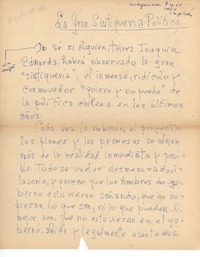 La Gran Siutiquería Política
No se si alguien, talvez Joaquin
Edwards, habrá observado la gran
"siutiquería", el inmenso, ridículo y
conmovedor "quiero y no puedo" de
la política chilena en los últimos
años.
Cada vez la ambición, el propósito
los planes y las promesas se alejan
más de la realidad inmediata y posi-
ble. Todo se vuelve desmesurado, i-
lusorio, y parece que los hombres de go-
bierno estuvieran soñando, que no su-
pieran lo que son, ni lo que pueden. O,
mejor aún, que no estuvieran en el go-
bierno, sólida y legalmente asentados,